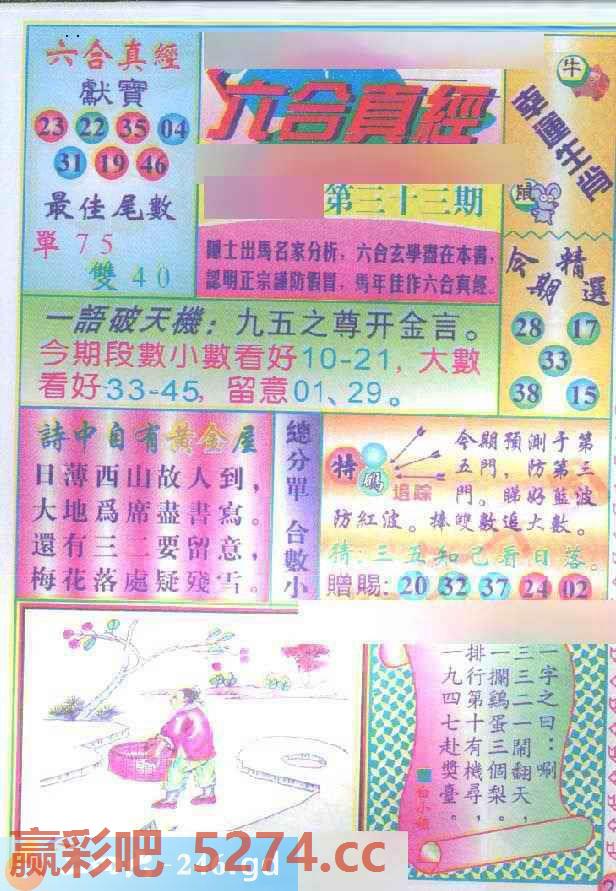 六合真經
獻寶
23 22 35 04
31 19 46
最佳尾數
單 7 5
雙 4 0
六合真經
第三十三期
隱士出馬名家分析，六合玄學盡在本書，
認明正宗謹防假冒，馬年佳作六合真經。
牛
幸運生肖
鼠
今期精選
28 17
33
38 15
一語破天機：九五之尊开金言。
今期段數小數看好10-21，大數
看好33-45，留意01、29。
詩中自有黃金屋
日薄西山故人到，
大地爲席盡書寫。
還有三二要留意，
梅花落處疑殘雪。
總分單 合數小
特碼
追踪
今期預測于第
五門，防第三
門。睇好藍波
防紅波。捧雙數追大數。
猜：三五知己看日落。
贈賜：20 32 37 24 02
一字之曰：唰
三三二一鬧翻天，
一攔鷄蛋三個梨。
排行第十有機尋，
一九四七赴獎臺。
白小姐
赢彩吧 5274.cc